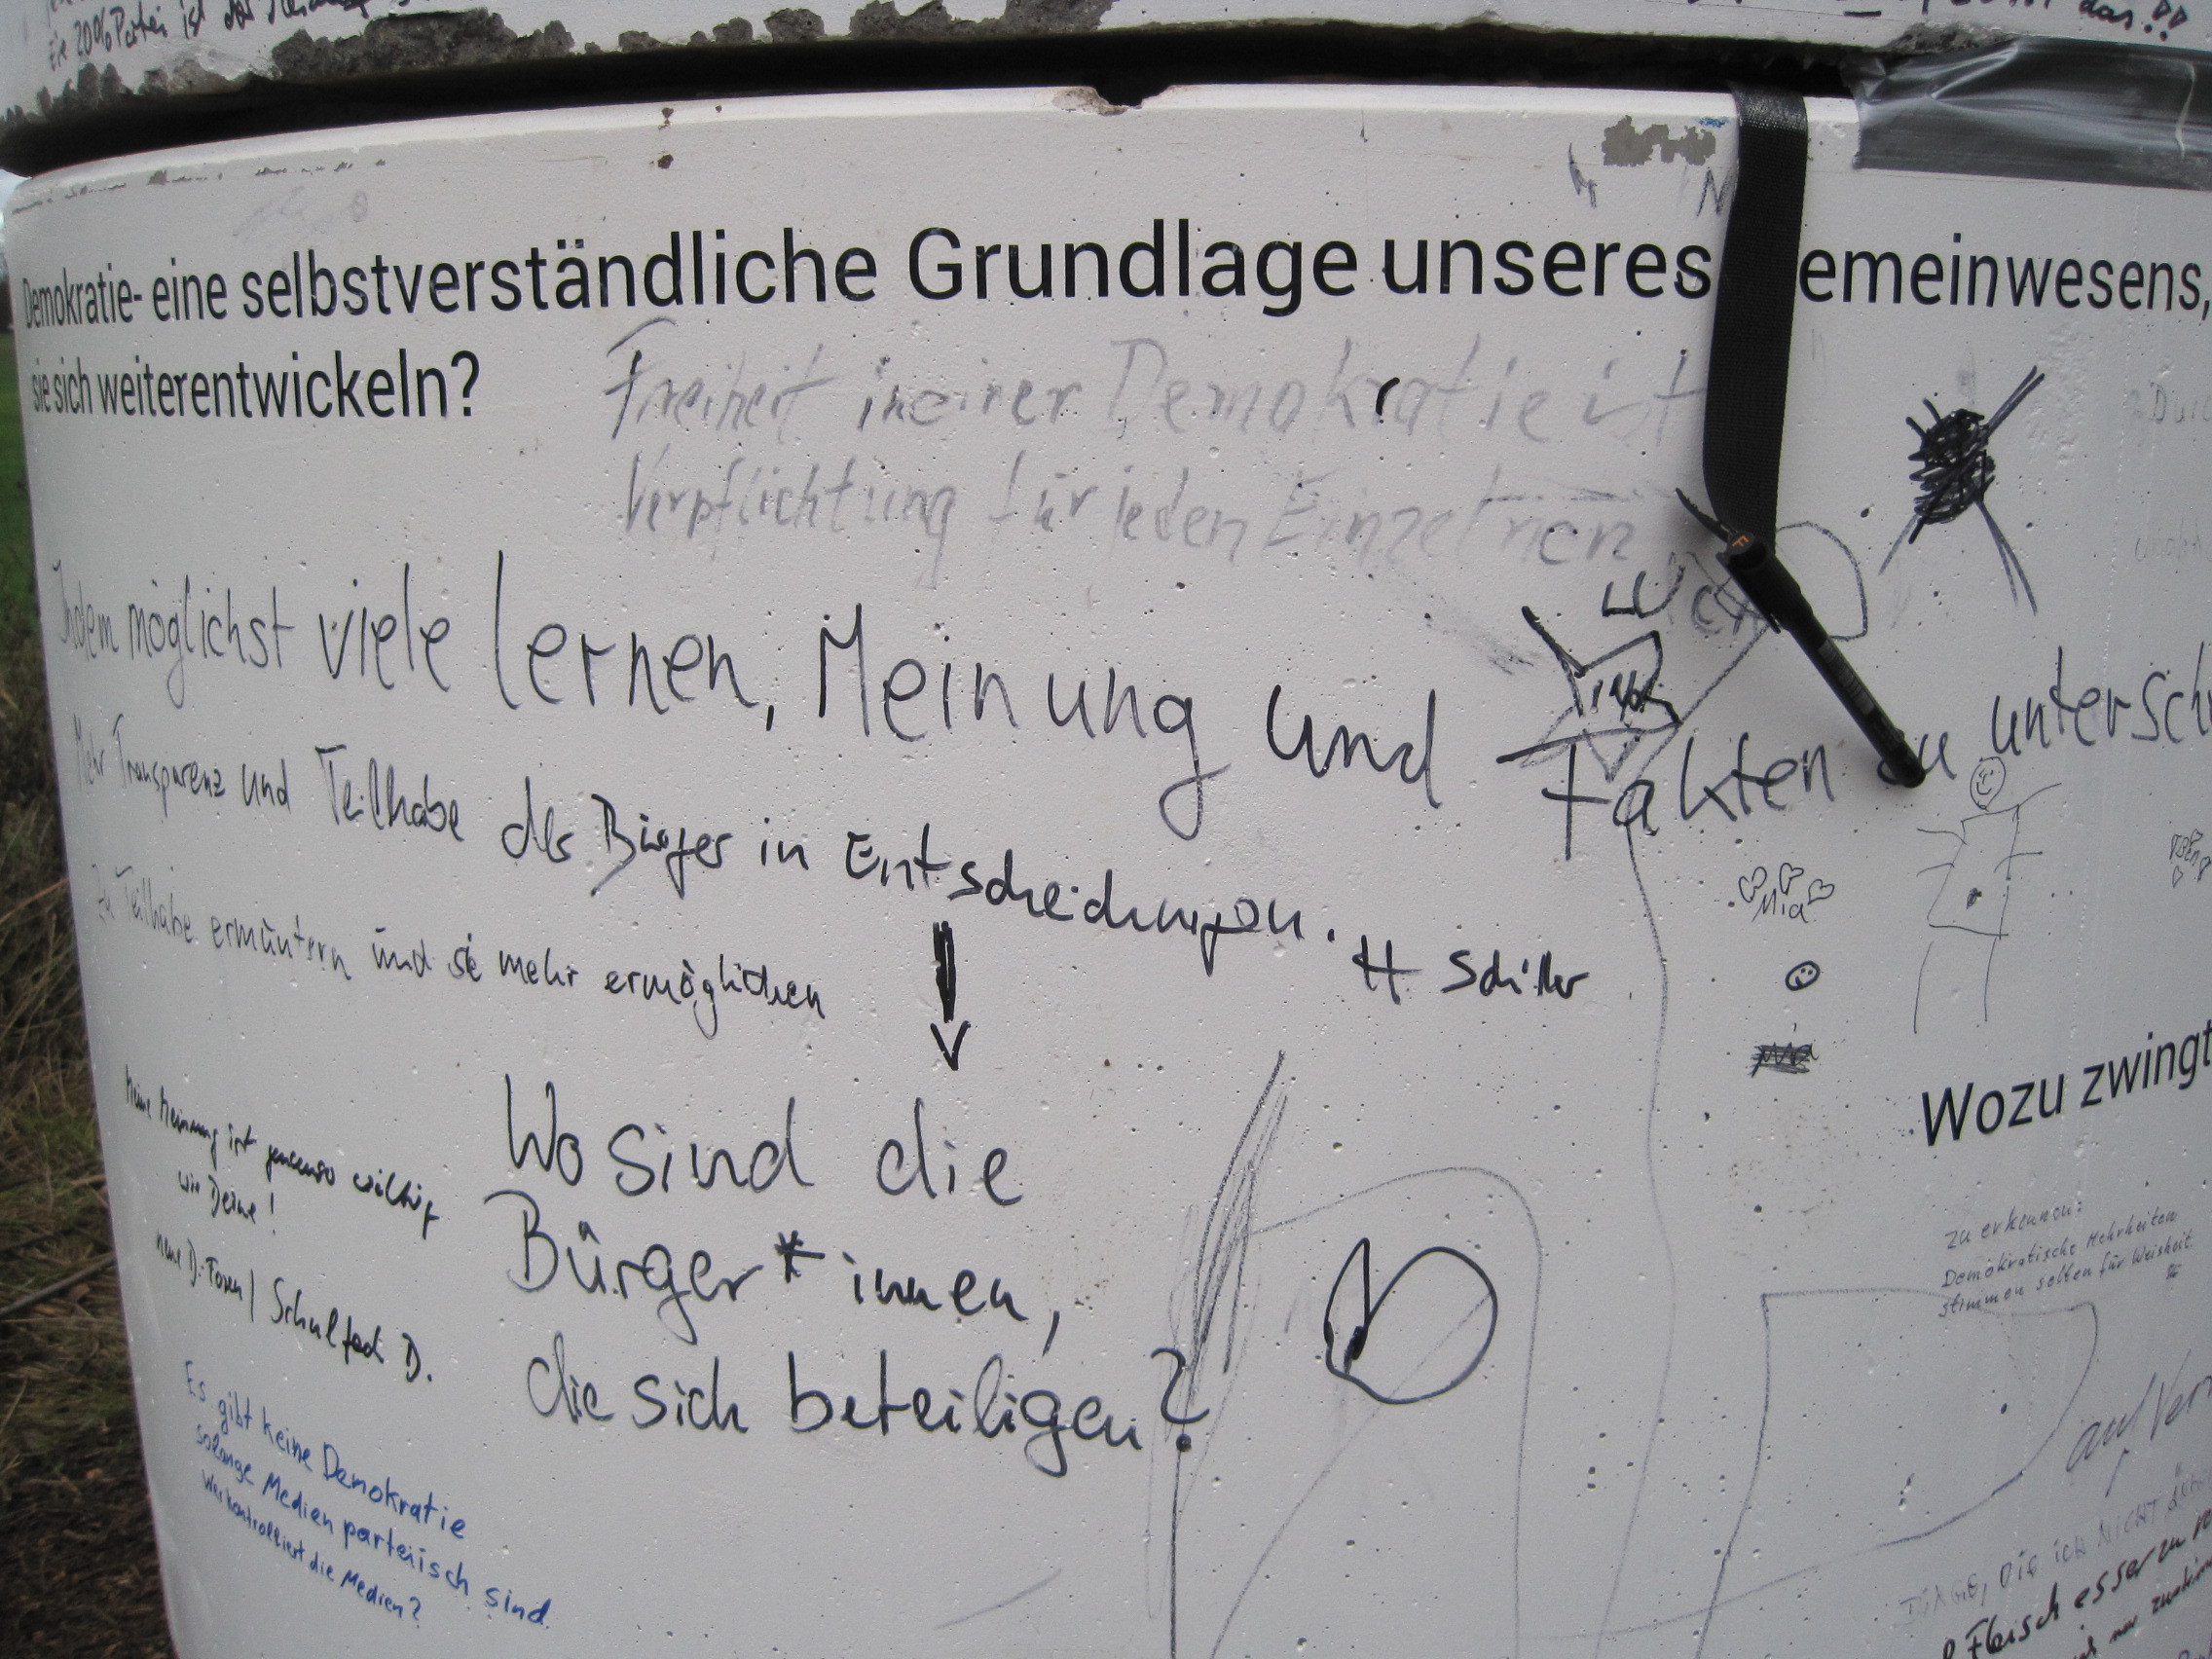 20% Partei ist der
das!!
Demokratie- eine selbstverständliche Grundlage unseres emeinwesens,
sie sich weiterentwickeln?
Freiheit in einer Demokratie ist
Verpflichtung für jeden Einzelnen
Indem möglichst viele lernen, Meinung und Fakten zu untersch
Mehr Transparenz und Teilhabe der Bürger in Entscheidungen.
H Schiller
Zu Teilhabe ermuntern und sie mehr ermöglichen
Mia
Wo sind die
Bürger*innen,
die sich beteiligen?
Meine Meinung ist genauso wichtig
wie Deine!
neue D.-Foren / Schulfach D.
Es gibt keine Demokratie
solange Medien parteiisch sind.
Wer kontrolliert die Medien?
Wozu zwingt
zu erkennen:
Demokratische Mehrheiten
stimmen selten für Weisheit.
auf Ver
DINGE, DIE ICH NICHT
Fleisch esser zu